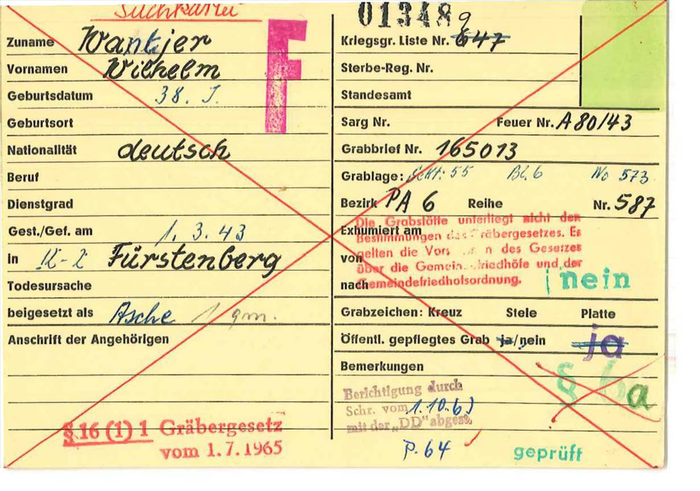 Suchkartei
013489
F
Zuname Wantjer
Vornamen Wilhelm
Geburtsdatum 38. J.
Geburtsort
Nationalität deutsch
Beruf
Dienstgrad
Gest./Gef. am 1. 3. 43
in K-Z Fürstenberg
Todesursache
beigesetzt als Asche 1 qm.
Anschrift der Angehörigen
§ 16 (1) 1 Gräbergesetz
vom 1.7.1965
Kriegsgr. Liste Nr. 647
Sterbe-Reg. Nr.
Standesamt
Sarg Nr. Feuer Nr. A 80/43
Grabbrief Nr. 165013
Grablage: Sekt: 55 Bl. 6 No 573
Bezirk PA 6 Reihe Nr. 587
Die Grabstätte unterliegt nicht den
Exhumiert am
Bestimmungen des Gräbergesetzes. Es
gelten die des Gesetzes
von
über die Gemeindefriedhöfe und der
nach
Gemeindefriedhofsordnung.
nein
Grabzeichen: Kreuz Stele Platte
Öffentl. gepflegtes Grab ja/nein ja
Bemerkungen
§ 6 a
Berichtigung durch
Schr. vom 1.10.63
mit der „DD" abgest.
P. 64
geprüft